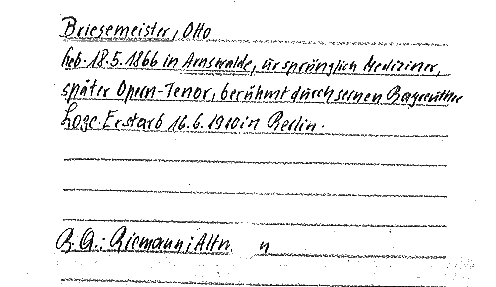 Briesemeister, Otto
Geb. 18.5.1866 in Arnswalde, ursprünglich Mediziner,
später Opern-Tenor, berühmt durch seinen Bayreuther
Loge. Erstarb 16.6.1910 in Berlin.
R.A.: Riemann; Altm. n